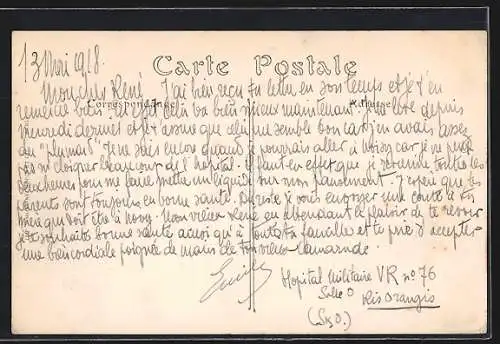 13 Mai 1918.
Carte Postale
Mon cher René J'ai bien reçu ta lettre en son temps et je t'en
Correspondance
Adresse
remercie bien. Ici cela va bien mieux maintenant. Je me lève depuis
et je t'assure que cela me semble bon car j'en avais assez
du "plumard". Je ne sais encore quand je pourrais aller à car je ne peux
pas m'éloigner beaucoup de l'hôpital. Il faut en effet que je toutes les
deux heures pour me faire mettre un liquide sur mon pansement. J'espère que tes
parents sont toujours en bonne santé. vous envoyer une carte à ta
mère que doit être à Mon vieux René en attendant le plaisir de te revoir
je te souhaite bonne santé ainsi qu'à toute ta famille et te prie d'accepter
une bien cordiale poignée de main de ton vieux camarade.
Hopital Militaire VR n° 76
Salle O
Ris Orangis
(S&O.)